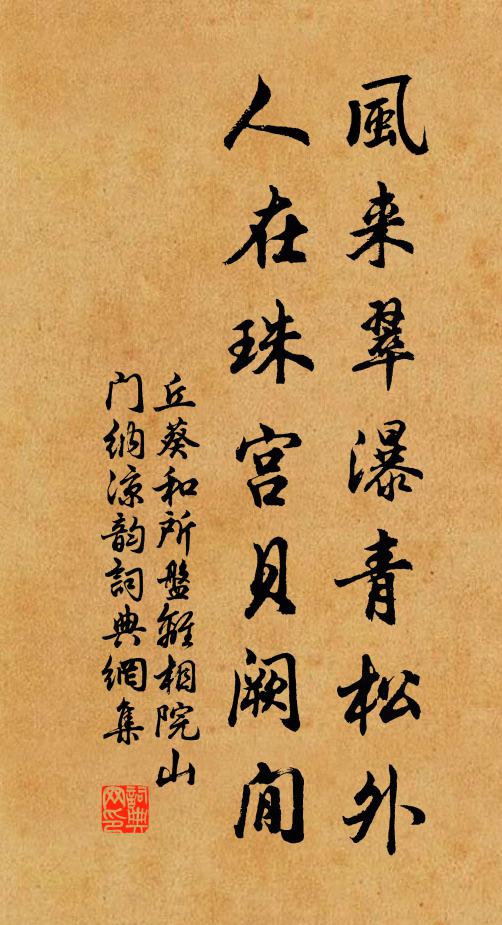 風来翠瀑青松外
人在珠宫貝阙間
丘葵和所盤離相院山
门纳凉韵詞典網集
詞典网印